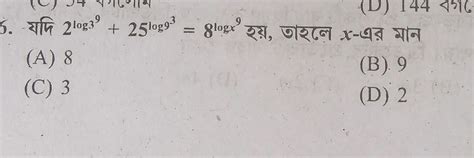 (D) 144
5. যদি 2^log3^9 + 25^log9^3 = 8^logx^9 হয়, তাহলে x-এর মান
(A) 8 (B) 9
(C) 3 (D) 2